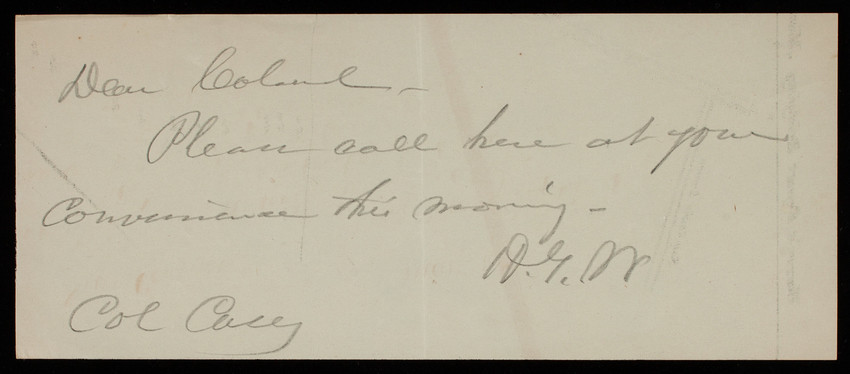 Dear Colonel -
Please call here at your
convenience this morning -
H. G. W
Col Casey